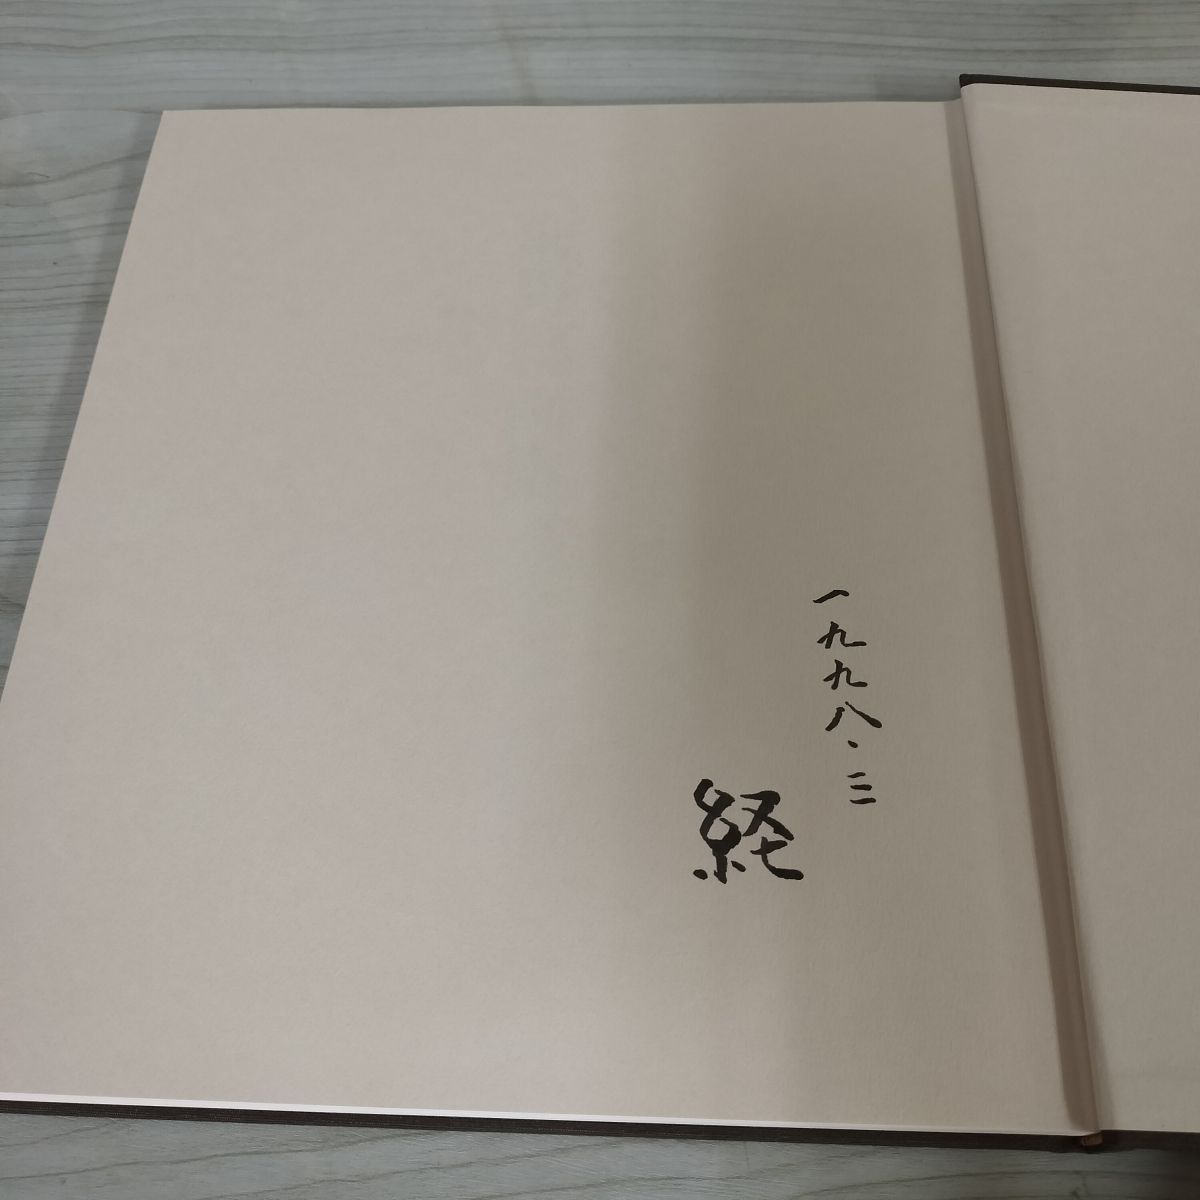 一九九八・三
経